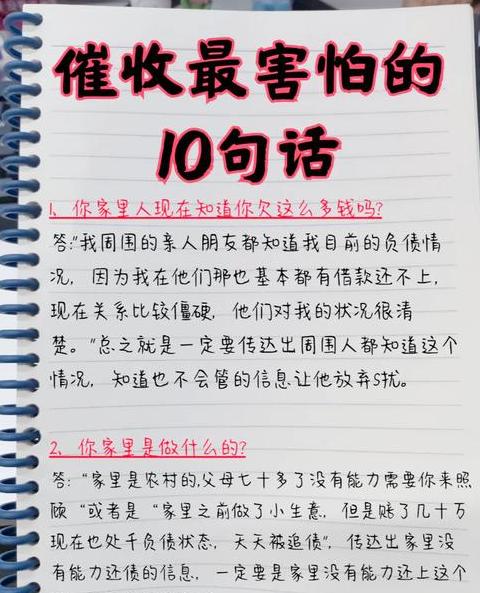 催收最害怕的
10句话
1、你家里人现在知道你欠这么多钱吗?
答:"我周围的亲人朋友都知道我目前的负债情
况，因为我在他们那也基本都有借款还不上，
现在关系比较僵硬，他们对我的状况很清
楚。"总之就是一定要传达出周围人都知道这个
情况，知道也不会管的信息让他放弃S扰。
2、你家里是做什么的?
答:"家里是农村的,父母七十多了没有能力需要你来照
顾"或者是"家里之前做了小生意，但是赔了几十万
现在也处于负债状态，天天被追债"，传达出家里没
有能力还债的信息，一定要是家里没有能力还上这个